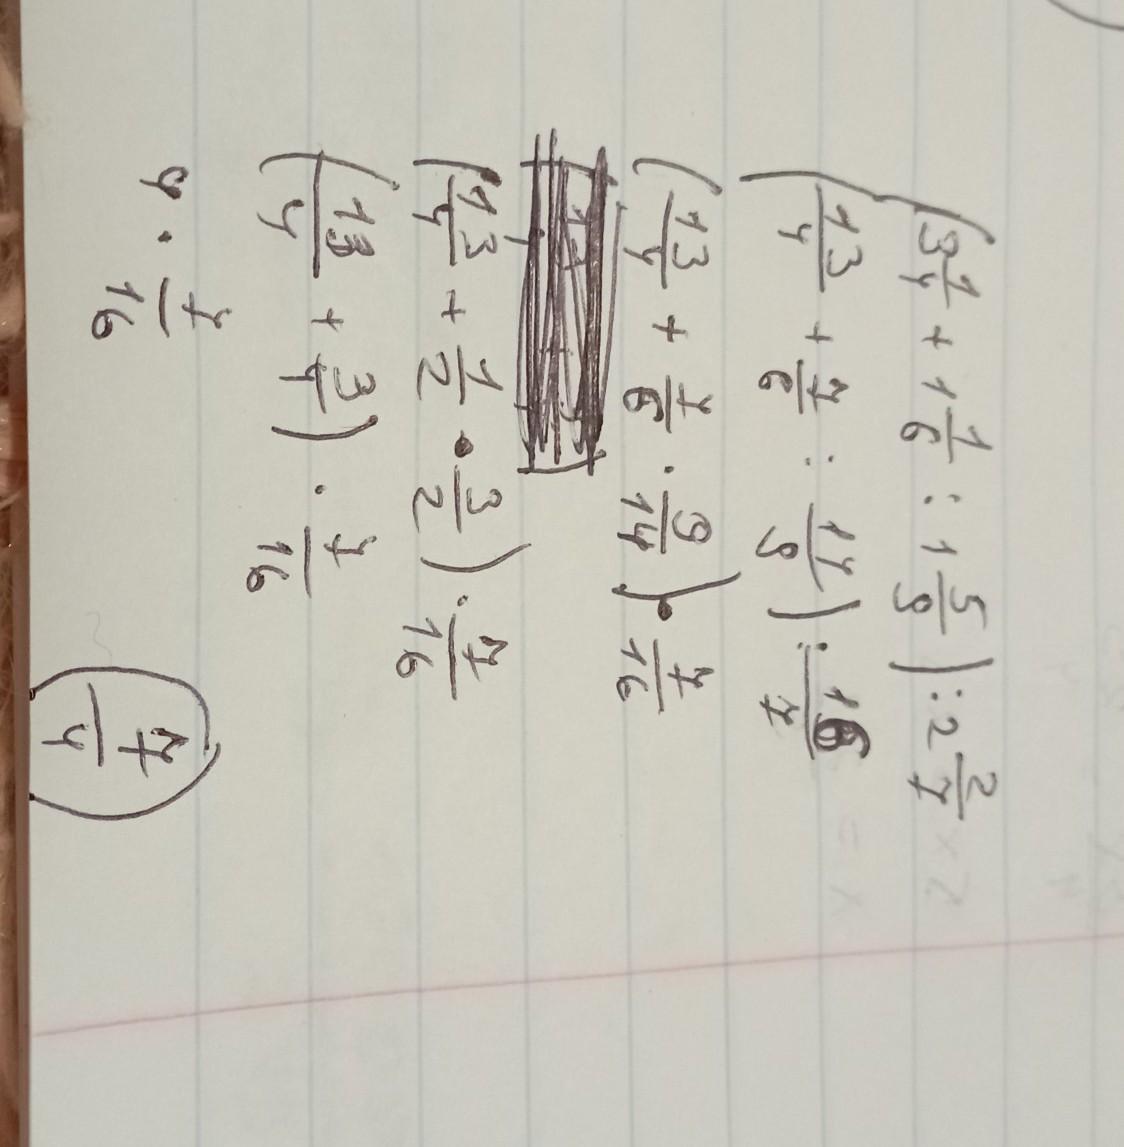 (3 1/4 + 1 1/6 : 1 5/9) : 2 2/7
(13/4 + 7/6 : 14/9) : 16/7
(13/4 + 7/6 · 9/14) · 7/16
(13/4 + 1/2 · 3/2) · 7/16
(13/4 + 3/4) · 7/16
4 · 7/16
7/4